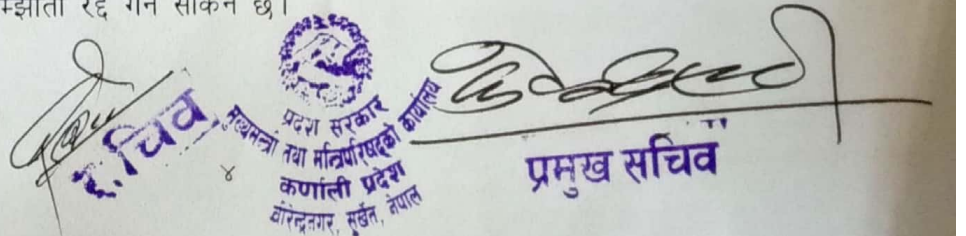 म्झौता रद्द गर्न सकिने छ।
सचिव
प्रदेश सरकार
मुख्यमन्त्री तथा मन्त्रिपरिषद्को कार्यालय
कर्णाली प्रदेश
वीरेन्द्रनगर, सुर्खेत, नेपाल
४
प्रमुख सचिव